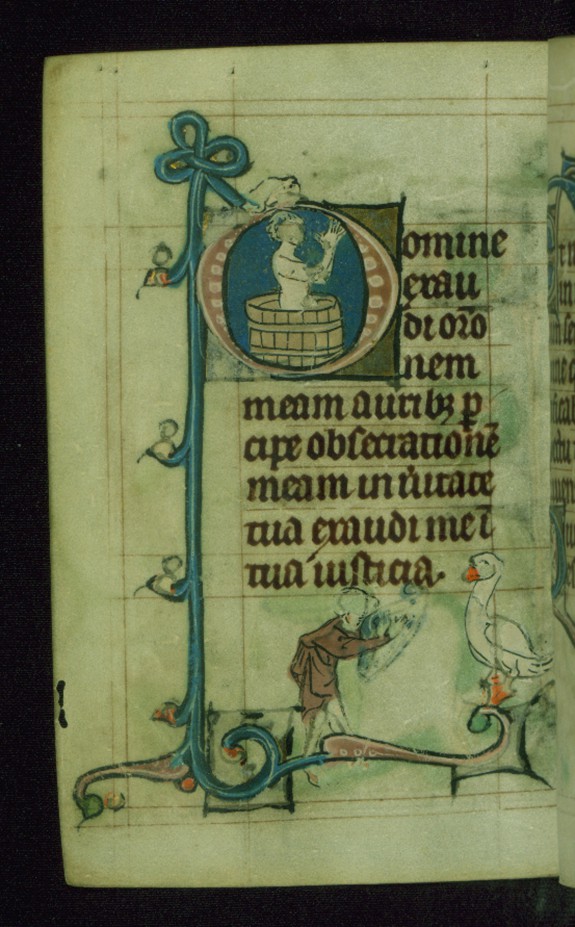 Domine
exau
di oro
nem
meam aurib; p
cipe obsecratione
meam in ueritate
tua exaudi me i
tua iusticia.